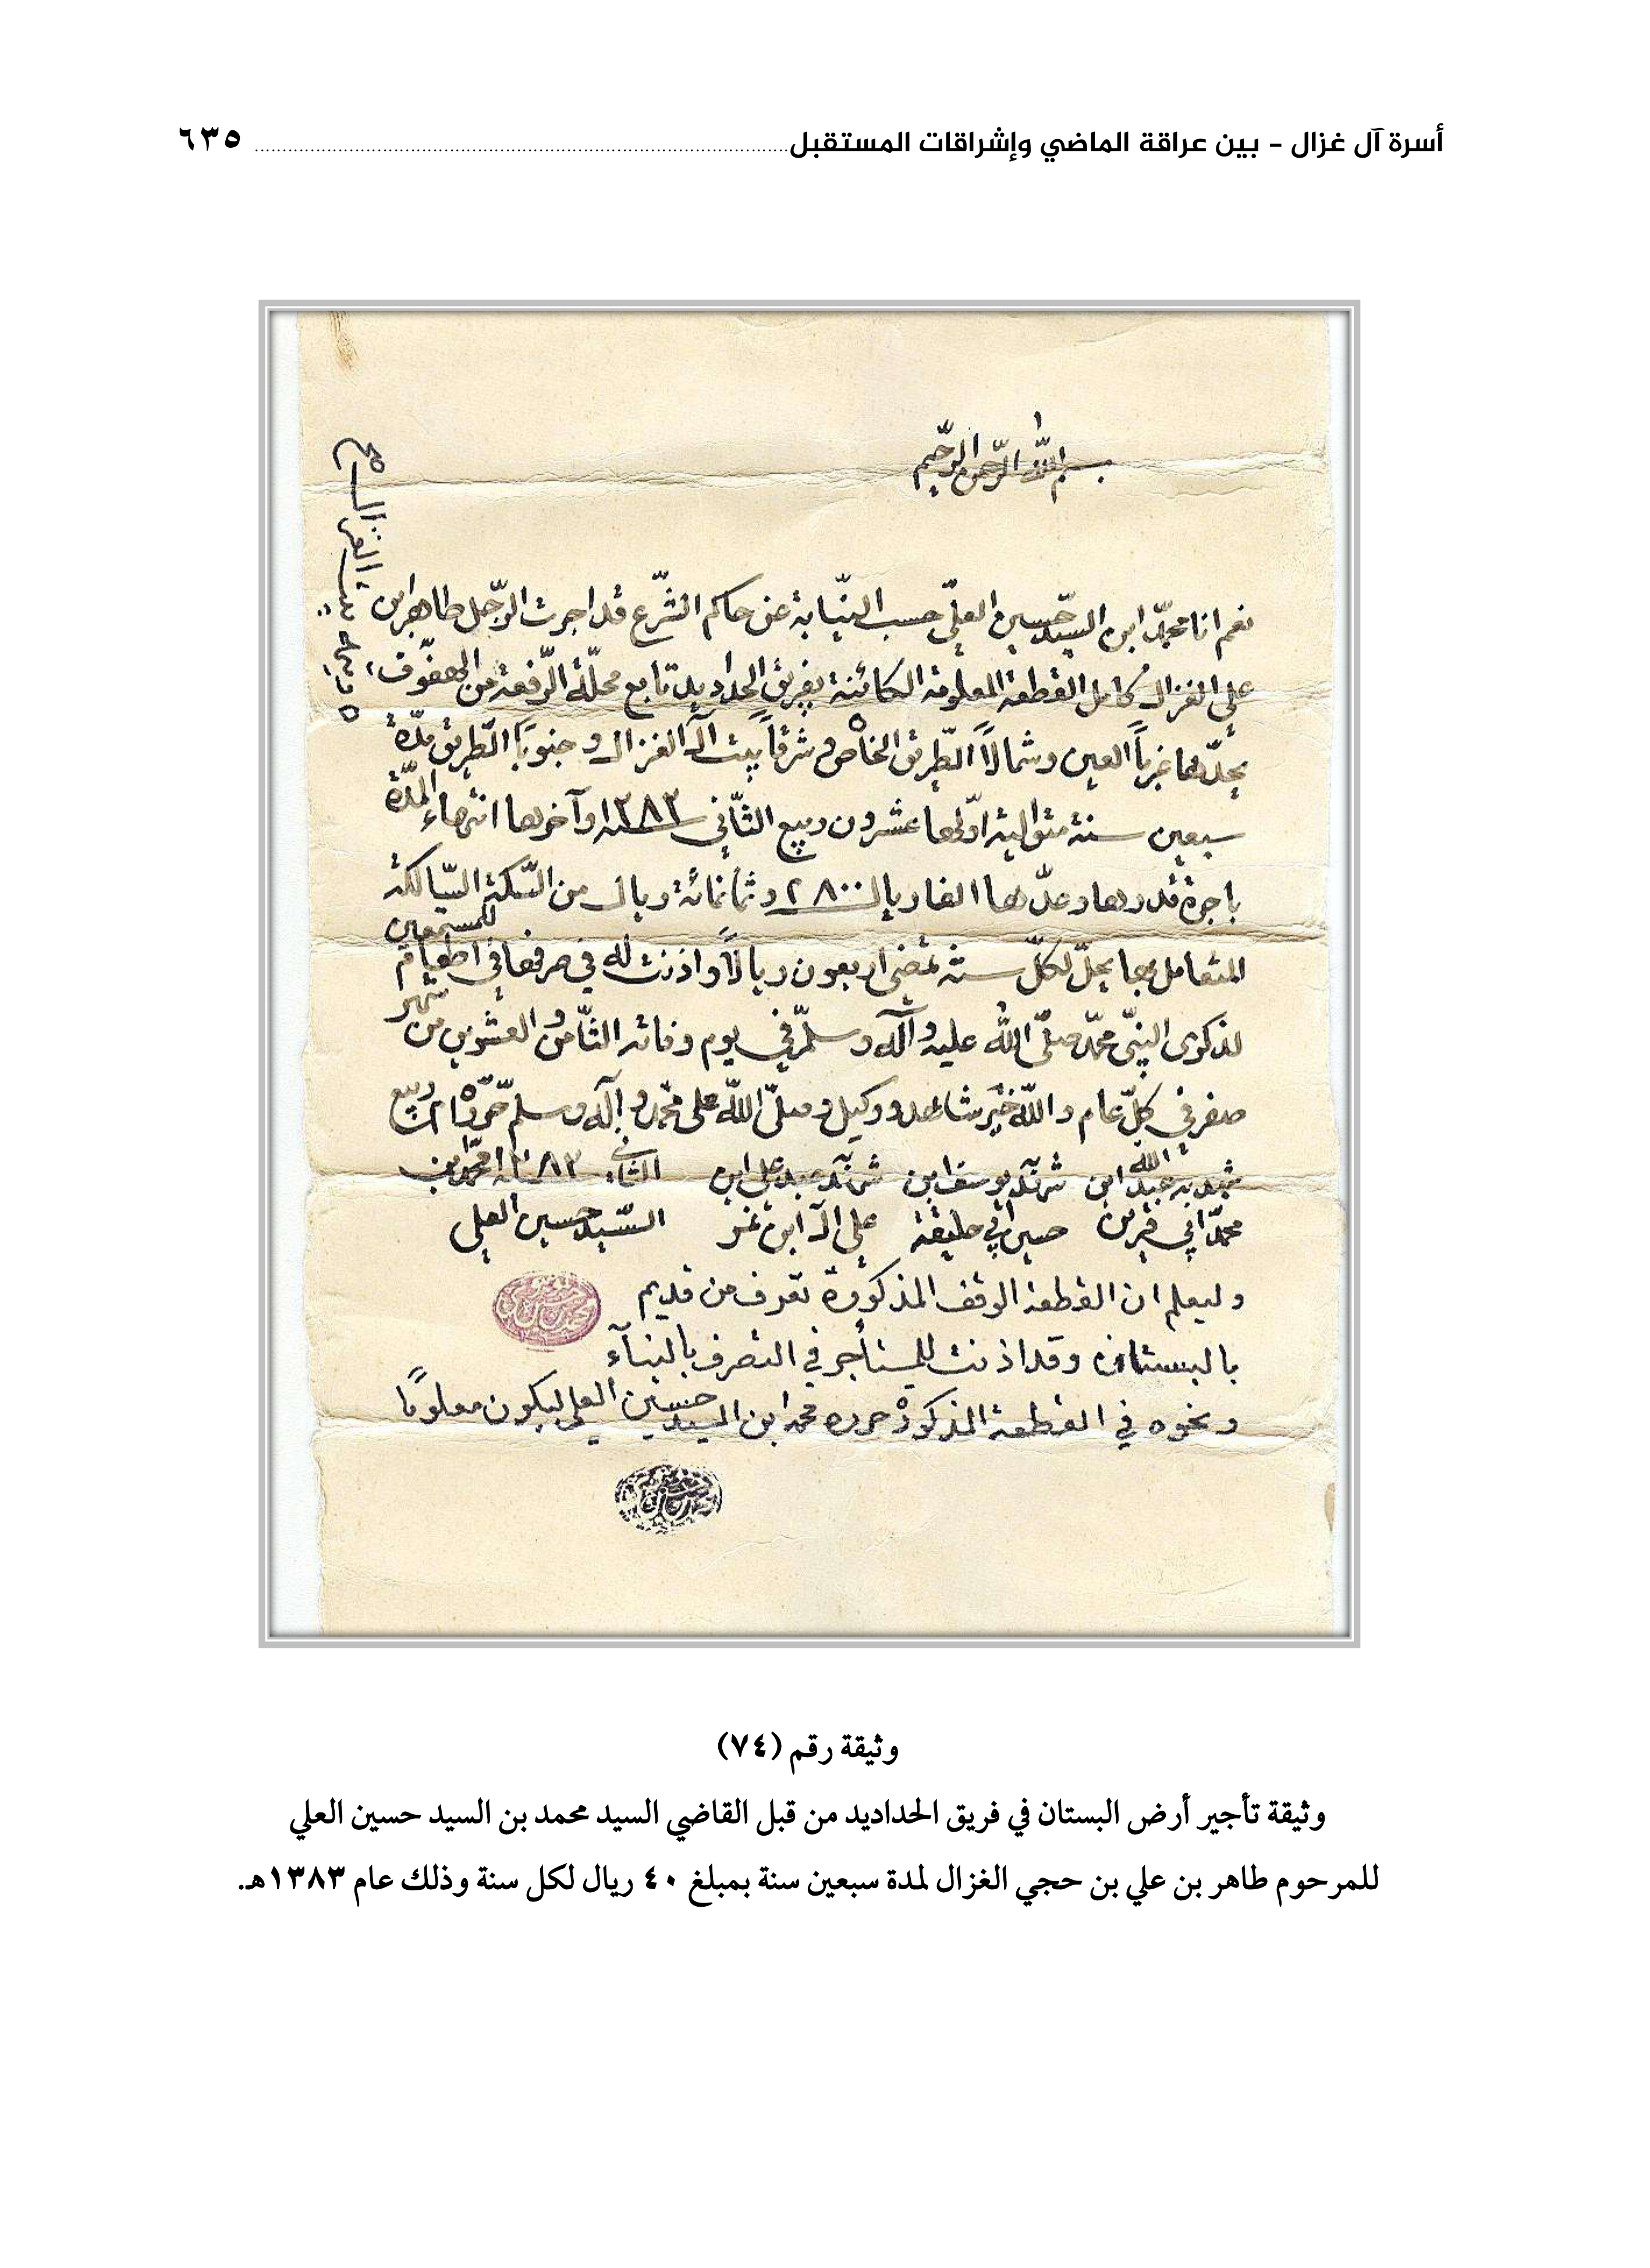 أسرة آل غزال – بين عراقة الماضي وإشراقات المستقبل ٦٣٥
بسم الله الرحمن الرحيم
نعم انا محمّد ابن السيّد حسين العلي حسب النيّابة عن حاكم الشّرع قد اجرت الرّجل طاهر ابن
علي الغزال كامل القطعة المعلومة الكائنة بفريق الحداديد تابع محلّة الرّفعة من الهفّوف،
يحدّها غرباً العين وشمالاً الطّريق الخاصّ وشرقاً بيت آل الغزال وجنوباً الطّريق مدّة
سبعين سنة متوالية اوّلها عشرون ربيع الثّاني سنة ١٣٨٣ وآخرها انتهاء المدّة
باجرة قدرها وعدّها الفا ريال ٢٨٠٠ وثمانمائة ريال من السّكة السّالكة
المتعامل بها يحلّ لكلّ سنة تمضي اربعون ريالاً واذنت له في صرفها في اطعام للمستمعين
لذكرى النبيّ محمّد صلّى الله عليه وآله وسلّم في يوم وفاته الثّامن والعشرين من شهر
صفر في كلّ عام والله خير شاهد ووكيل وصلّى الله على محمّد وآله وسلم حرّر ربيع
شهد به عبد الله ابن شهد يوسف ابن شهد عبد علي ابن الثاني سنة ١٣٨٣ محمّد بن
محمّد ابي قرين حسين ابي حليقة علي آل ابن السّيد حسين العلي
وليعلم ان القطعة الوقف المذكورة تعرف من قديم
بالبستان وقد اذنت للمستأجر في التصرف بالبنآء
ونحوه في القطعة المذكورة حرره محمد ابن السيد حسين العلي ليكون معلوماً
وثيقة رقم (٧٤)
وثيقة تأجير أرض البستان في فريق الحداديد من قبل القاضي السيد محمد بن السيد حسين العلي
للمرحوم طاهر بن علي بن حجي الغزال لمدة سبعين سنة بمبلغ ٤٠ ريال لكل سنة وذلك عام ١٣٨٣هـ.